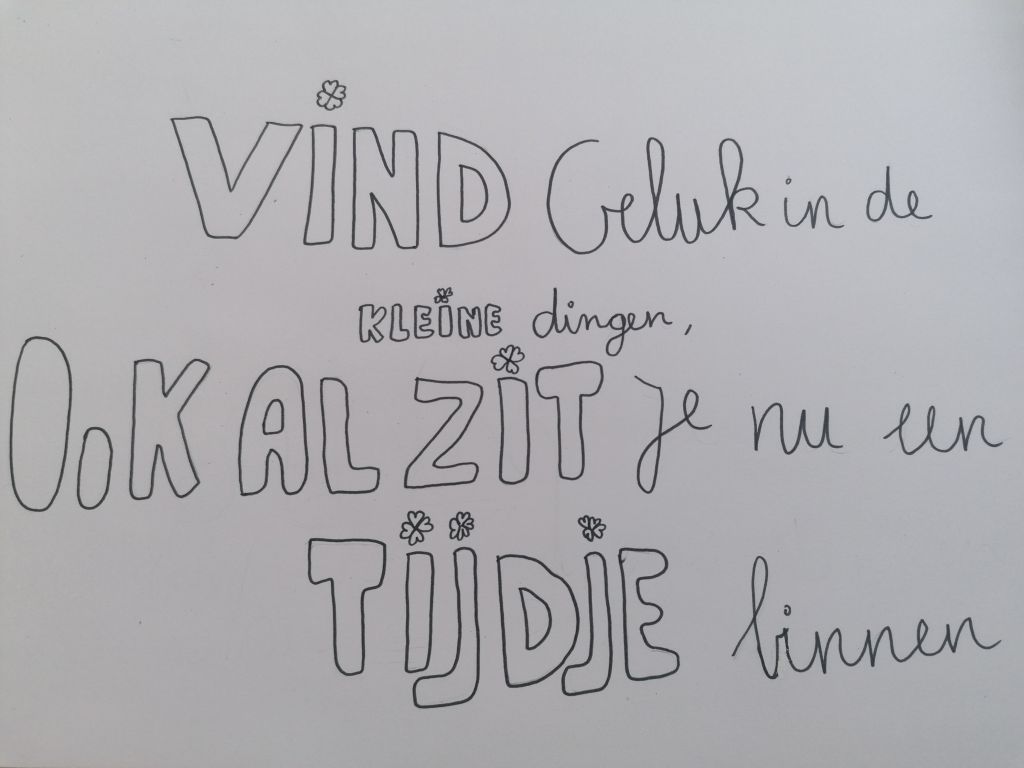 VIND Geluk in de
KLEINE dingen,
OOK AL ZIT je nu een
TIJDJE binnen